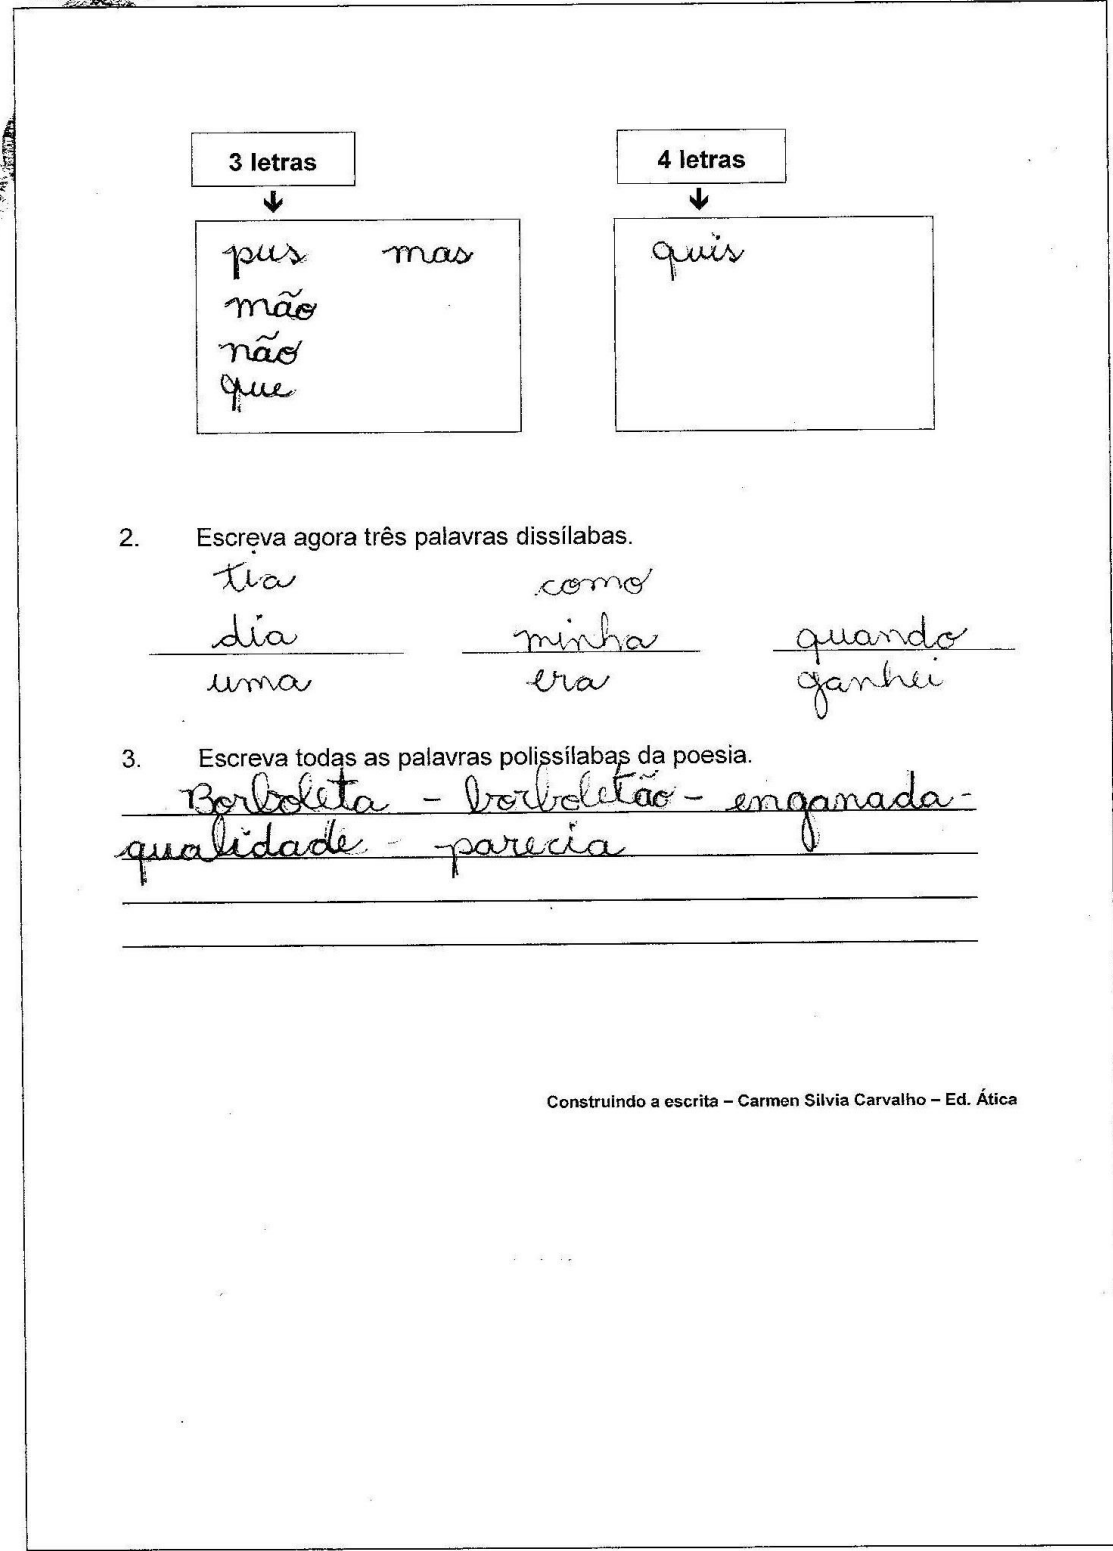 3 letras
4 letras
pus mas
quis
mão
não
que
2. Escreva agora três palavras dissílabas.
tia como
dia minha quando
uma era ganhei
3. Escreva todas as palavras polissílabas da poesia.
Borboleta - borboletão - enganada -
qualidade - parecia
Construindo a escrita – Carmen Silvia Carvalho – Ed. Ática